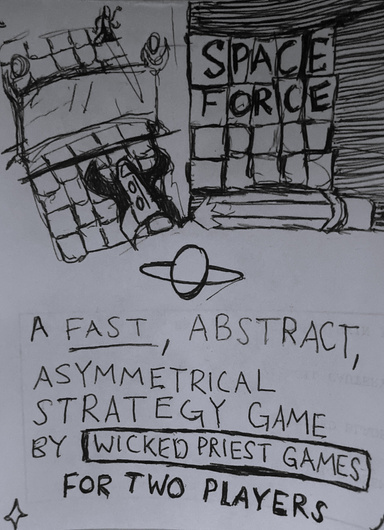 SPACE
FORCE
A FAST, ABSTRACT,
ASYMMETRICAL
STRATEGY GAME
BY WICKED PRIEST GAMES
FOR TWO PLAYERS